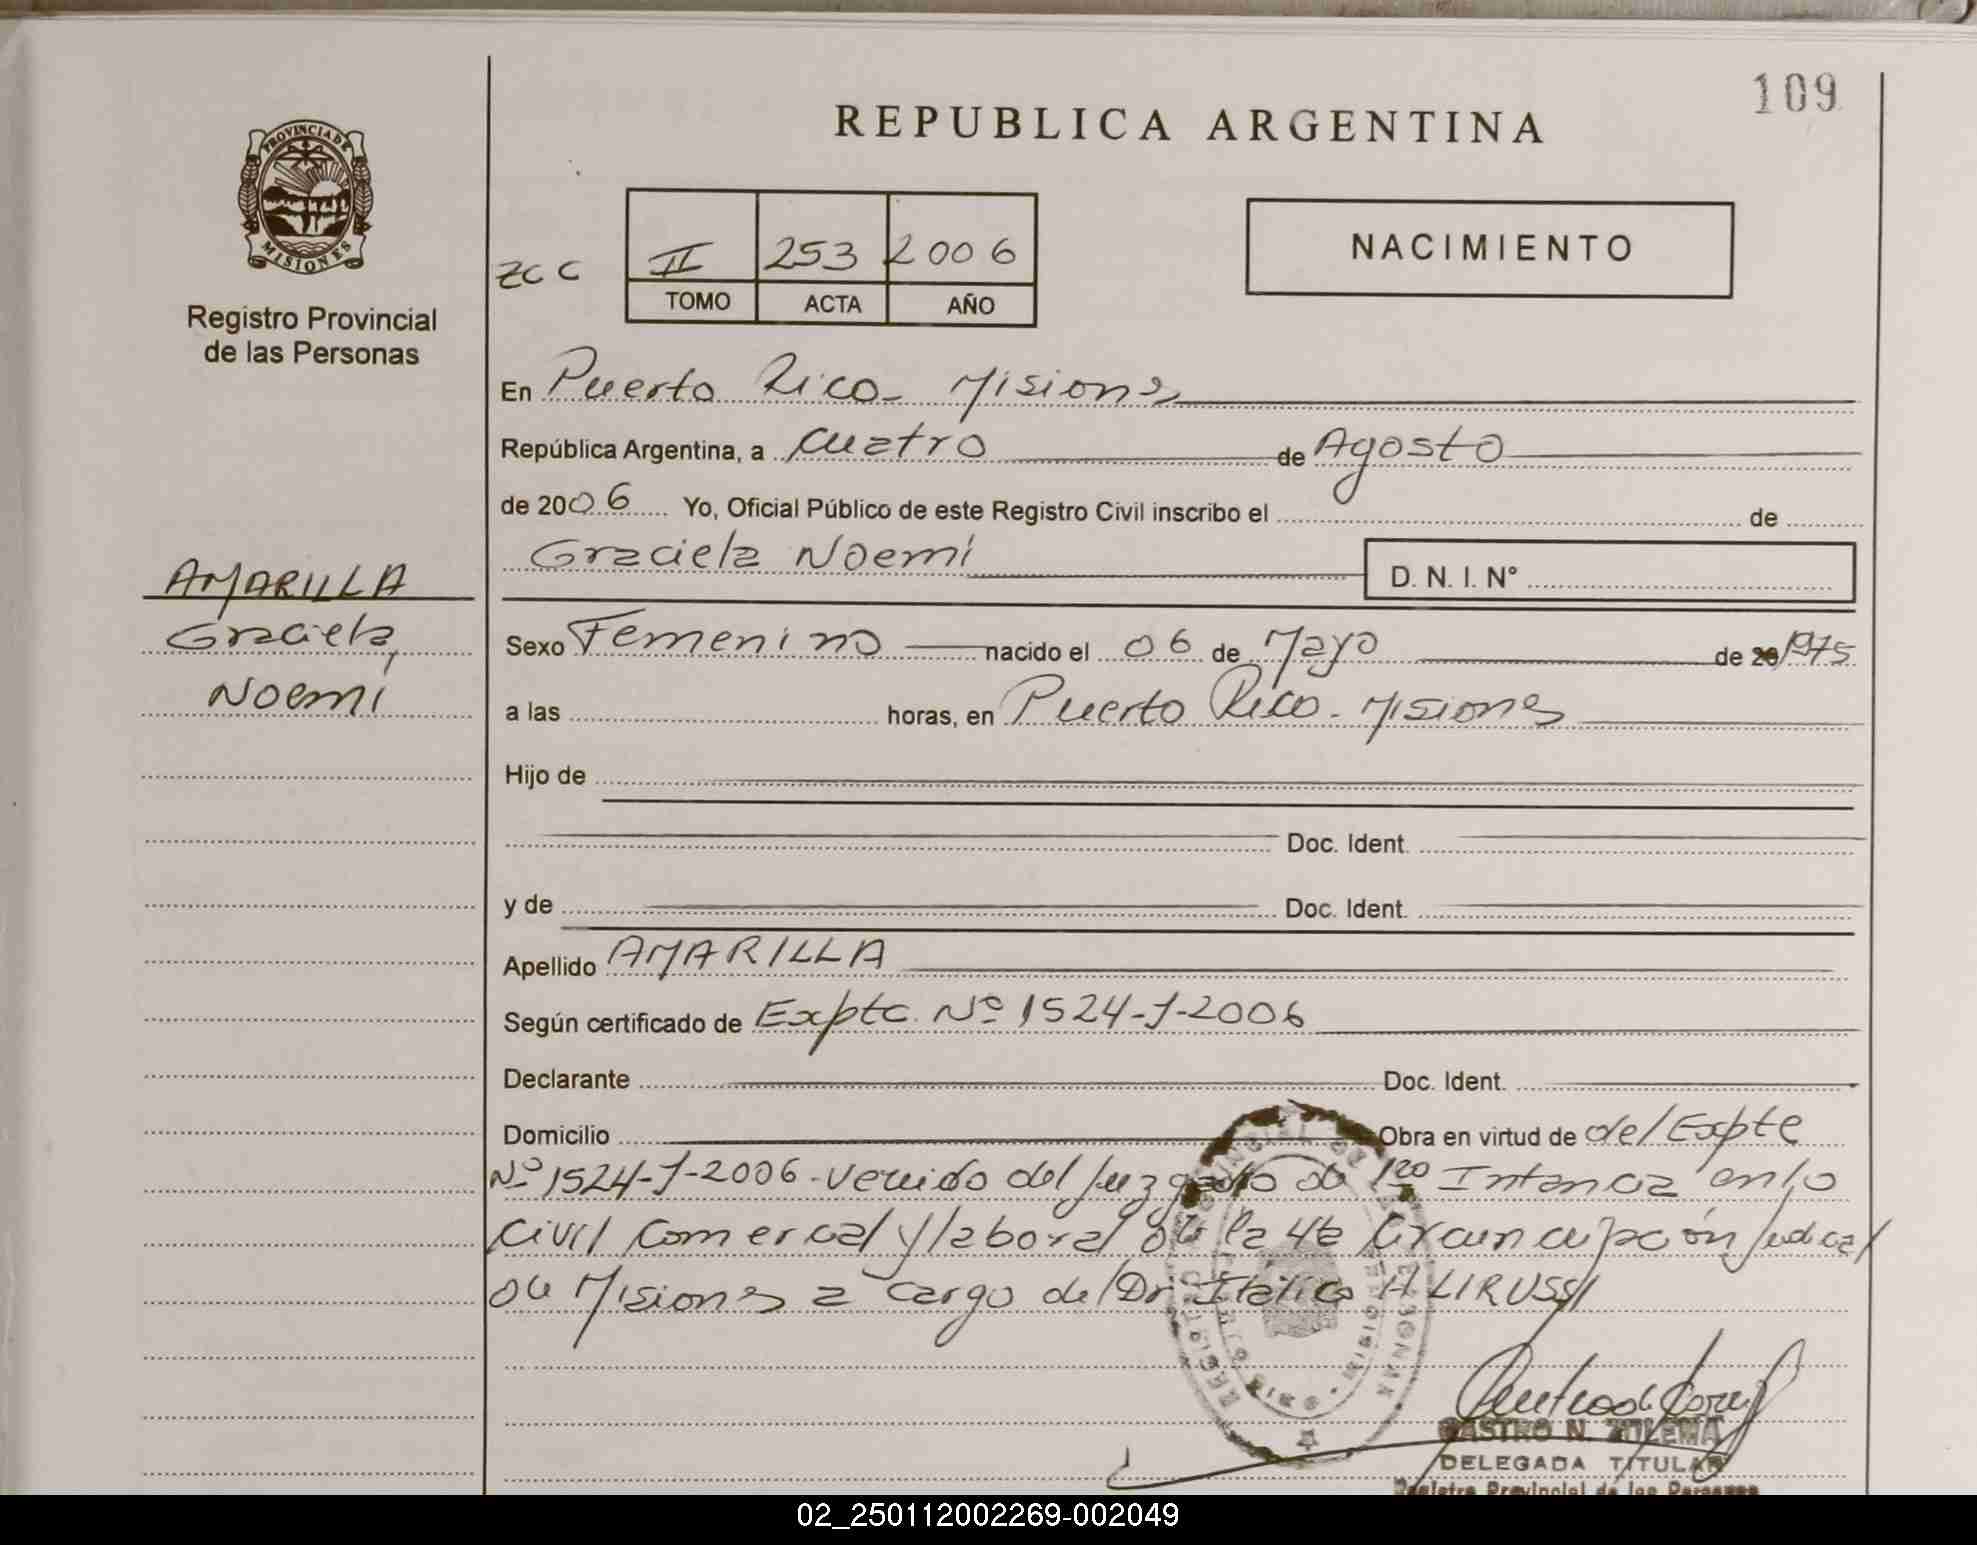 109
REPUBLICA ARGENTINA
PROVINCIA DE
MISIONES
Registro Provincial
de las Personas
ZCC
II 253 2006
TOMO ACTA AÑO
NACIMIENTO
En Puerto Rico - Misiones
República Argentina, a cuatro de Agosto
de 2006 Yo, Oficial Público de este Registro Civil inscribo el de
Graciela Noemí D. N. I. Nº
AMARILLA
Graciela,
Noemí
Sexo Femenino nacido el 06 de Mayo de 20 1975
a las horas, en Puerto Rico - Misiones
Hijo de
Doc. Ident.
y de Doc. Ident.
Apellido AMARILLA
Según certificado de Expte. Nº 1524-J-2006
Declarante Doc. Ident.
Domicilio Obra en virtud de del Expte
Nº 1524-J-2006 - venido del Juzgado de 1ra Intancia en lo
Civil Comercial y laboral de la 4ta Circuncripción Judicial
de Misiones a cargo del Dr Italico A LIRUSSI
CASTRO N. ZULEMA
DELEGADA TITULAR
Registro Provincial de las Personas
02_250112002269-002049